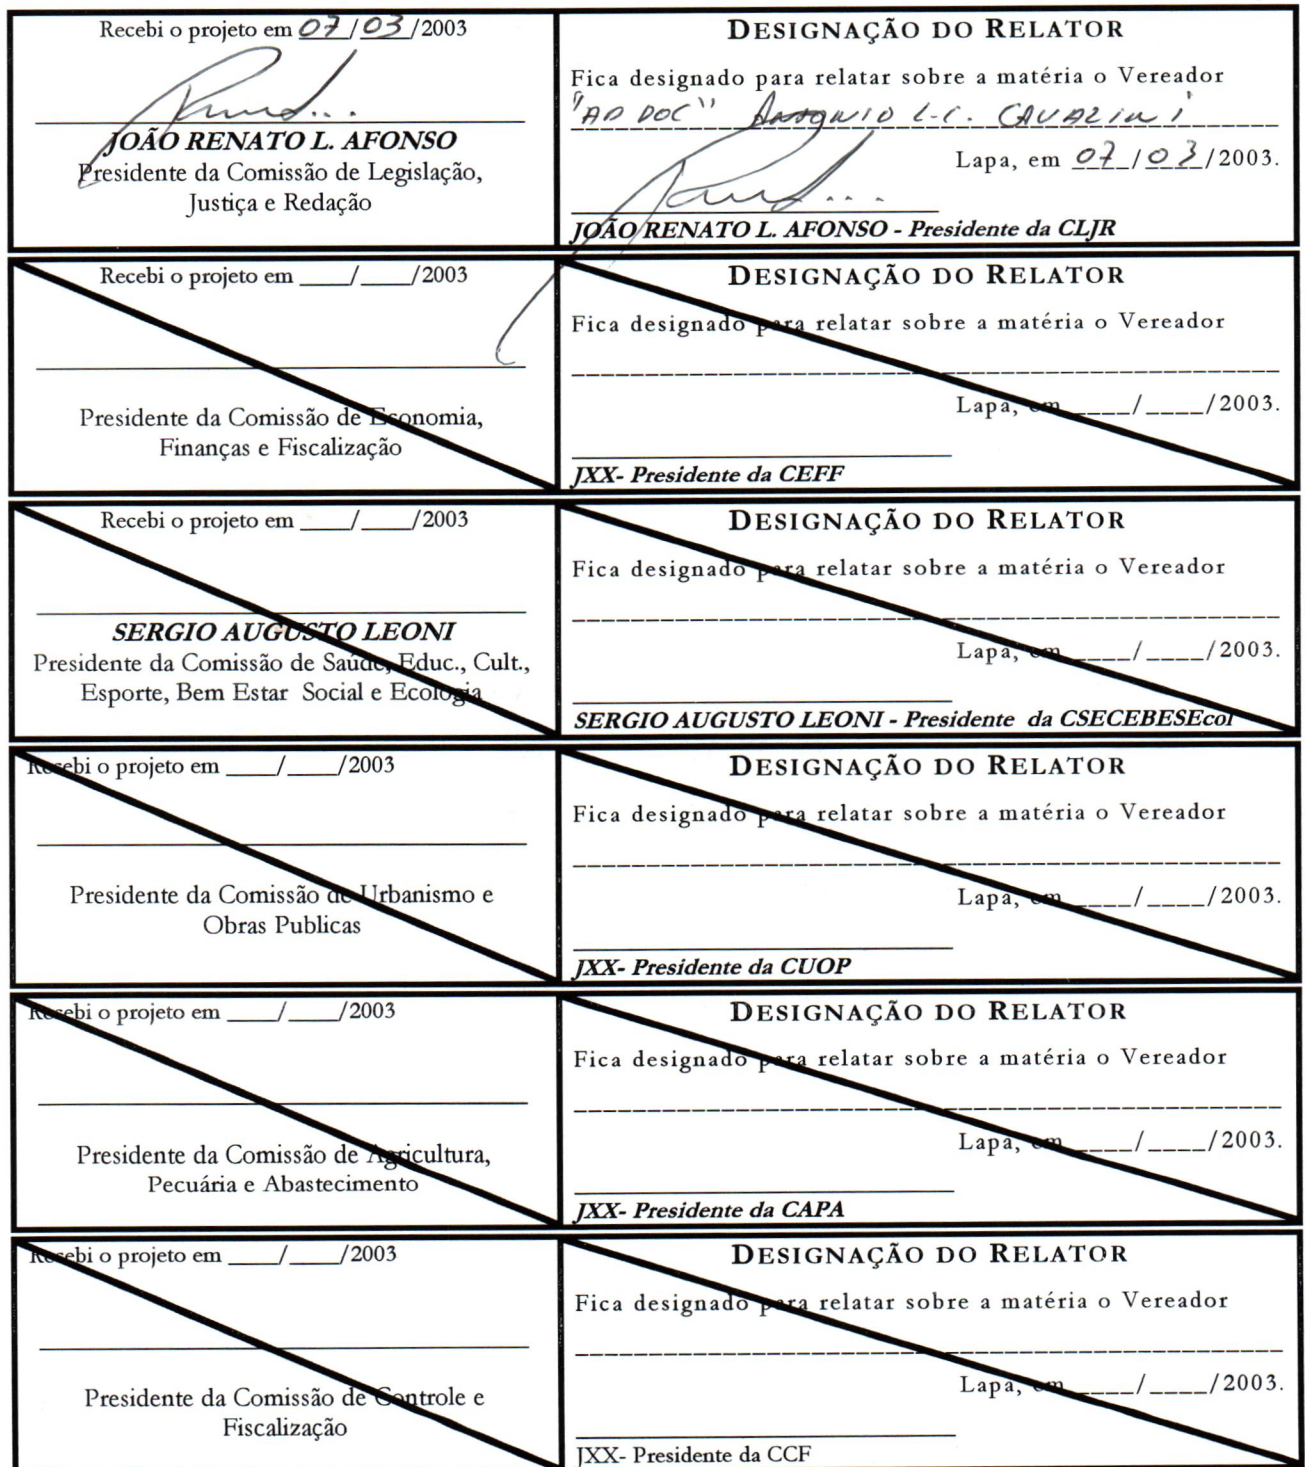 Recebi o projeto em 07/03/2003
JOÃO RENATO L. AFONSO
Presidente da Comissão de Legislação,
Justiça e Redação
DESIGNAÇÃO DO RELATOR
Fica designado para relatar sobre a matéria o Vereador
"AD DOC" ANTONIO L.C. CAVALINI
Lapa, em 07/03/2003.
JOÃO RENATO L. AFONSO - Presidente da CLJR
Recebi o projeto em ____/____/2003
Presidente da Comissão de Economia,
Finanças e Fiscalização
DESIGNAÇÃO DO RELATOR
Fica designado para relatar sobre a matéria o Vereador
Lapa, em ____/____/2003.
JXX- Presidente da CEFF
Recebi o projeto em ____/____/2003
SERGIO AUGUSTO LEONI
Presidente da Comissão de Saúde, Educ., Cult.,
Esporte, Bem Estar Social e Ecologia
DESIGNAÇÃO DO RELATOR
Fica designado para relatar sobre a matéria o Vereador
Lapa, em ____/____/2003.
SERGIO AUGUSTO LEONI - Presidente da CSECEBESEcol
Recebi o projeto em ____/____/2003
Presidente da Comissão de Urbanismo e
Obras Publicas
DESIGNAÇÃO DO RELATOR
Fica designado para relatar sobre a matéria o Vereador
Lapa, em ____/____/2003.
JXX- Presidente da CUOP
Recebi o projeto em ____/____/2003
Presidente da Comissão de Agricultura,
Pecuária e Abastecimento
DESIGNAÇÃO DO RELATOR
Fica designado para relatar sobre a matéria o Vereador
Lapa, em ____/____/2003.
JXX- Presidente da CAPA
Recebi o projeto em ____/____/2003
Presidente da Comissão de Controle e
Fiscalização
DESIGNAÇÃO DO RELATOR
Fica designado para relatar sobre a matéria o Vereador
Lapa, em ____/____/2003.
JXX- Presidente da CCF